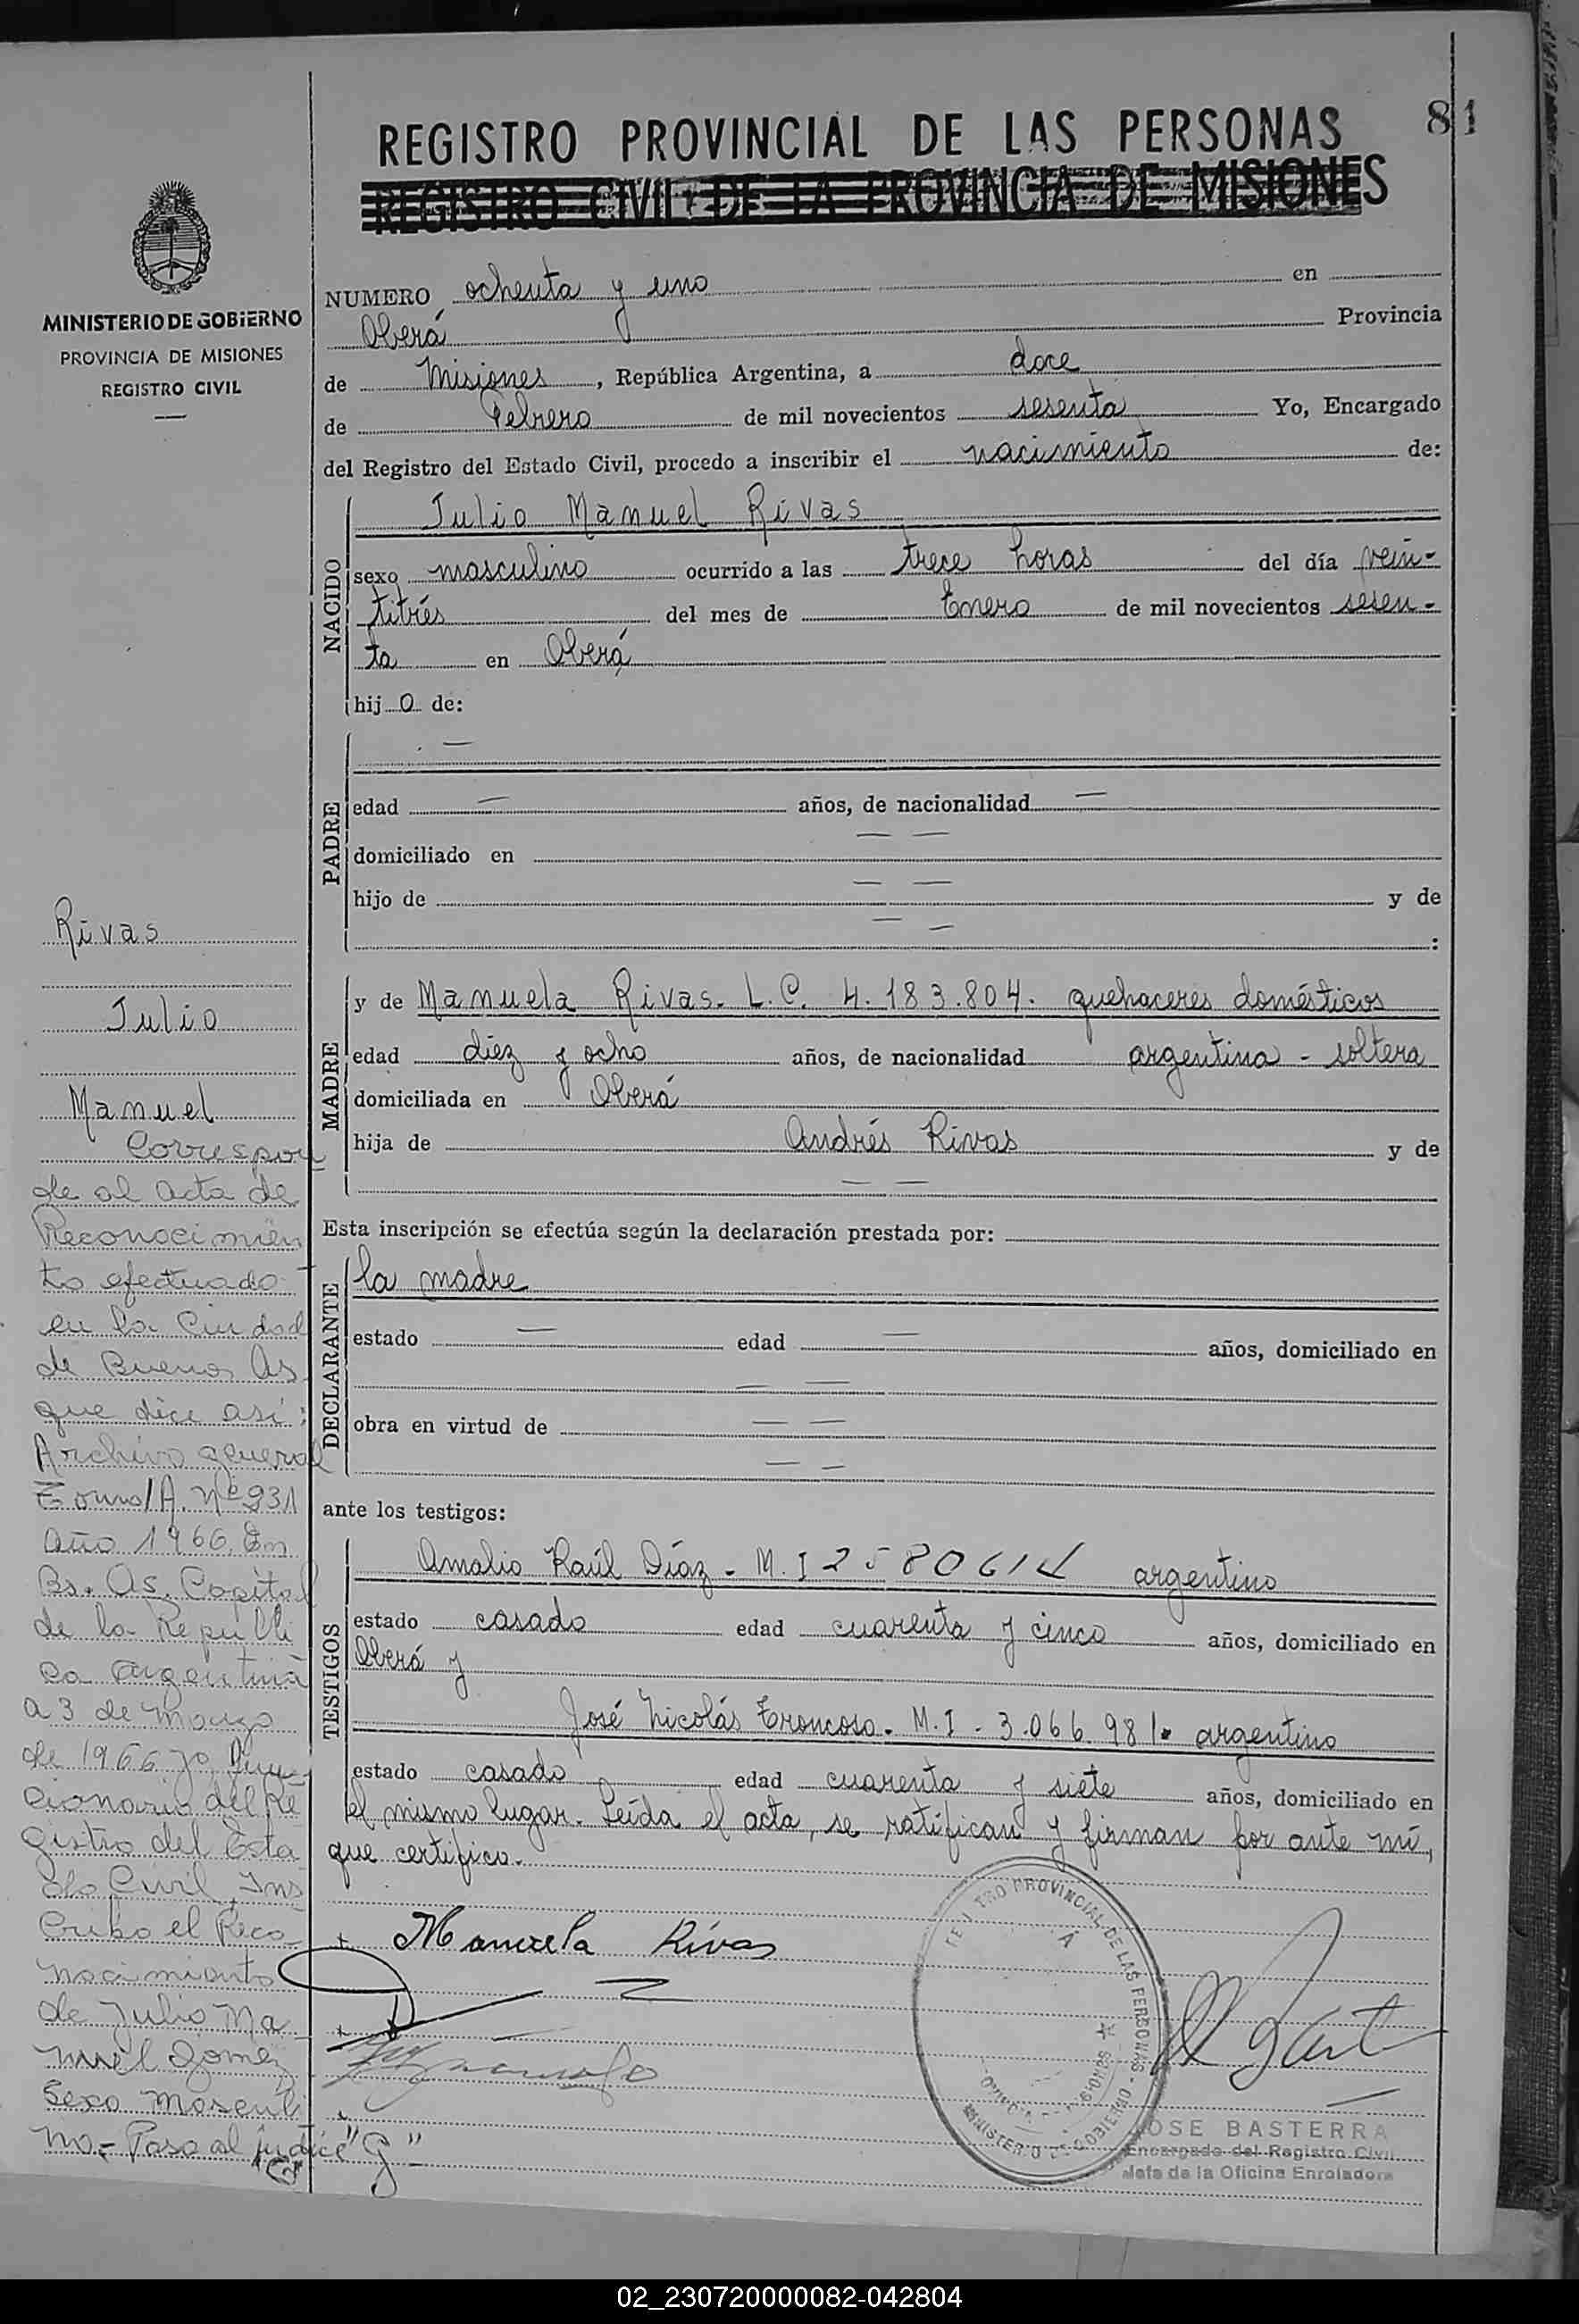 81
REGISTRO PROVINCIAL DE LAS PERSONAS
REGISTRO CIVIL DE LA PROVINCIA DE MISIONES
MINISTERIO DE GOBIERNO
PROVINCIA DE MISIONES
REGISTRO CIVIL
NUMERO ochenta y uno en
Oberá Provincia
de Misiones, República Argentina, a doce
de Febrero de mil novecientos sesenta Yo, Encargado
del Registro del Estado Civil, procedo a inscribir el nacimiento de:
NACIDO
Julio Manuel Rivas
sexo masculino ocurrido a las trece horas del día vein-
titrés del mes de Enero de mil novecientos sesen-
ta en Oberá
hijo de:
PADRE
—
edad — años, de nacionalidad —
domiciliado en — —
hijo de — — y de
— — :
MADRE
y de Manuela Rivas. L.C. 4.183.804. quehaceres domésticos
edad diez y ocho años, de nacionalidad argentina - soltera
domiciliada en Oberá
hija de Andrés Rivas y de
— —
Esta inscripción se efectúa según la declaración prestada por:
DECLARANTE
la madre
estado — edad — años, domiciliado en
— —
obra en virtud de — —
— —
ante los testigos:
TESTIGOS
Amalio Raúl Díaz - M.I 2580614 argentino
estado casado edad cuarenta y cinco años, domiciliado en
Oberá y
José Nicolás Troncoso. M.I - 3.066.981. argentino
estado casado edad cuarenta y siete años, domiciliado en
el mismo lugar. Leída el acta, se ratifican y firman por ante mí,
que certifico.
Manuela Rivas
PROVINCIAL DE LAS PERSONAS
MINISTERIO DE GOBIERNO
JOSE BASTERRA
Encargado del Registro Civil
Jefe de la Oficina Enroladora
Rivas
Julio
Manuel
Correspon
de al acta de
Reconocimien
to efectuado
en la Ciudad
de Buenos As
que dice así:
Archivo general
Tomo 1A. Nº 231
año 1966. En
Bs. As. Capital
de la Repúbli
ca Argentina
a 3 de Marzo
de 1966 yo, Fun
cionario del Re
gistro del Esta
do Civil, Ins
cribo el Reco-
nocimiento
de Julio Ma
nuel Gómez
Sexo Masculi
no.- Paso al índice "G"
02_230720000082-042804